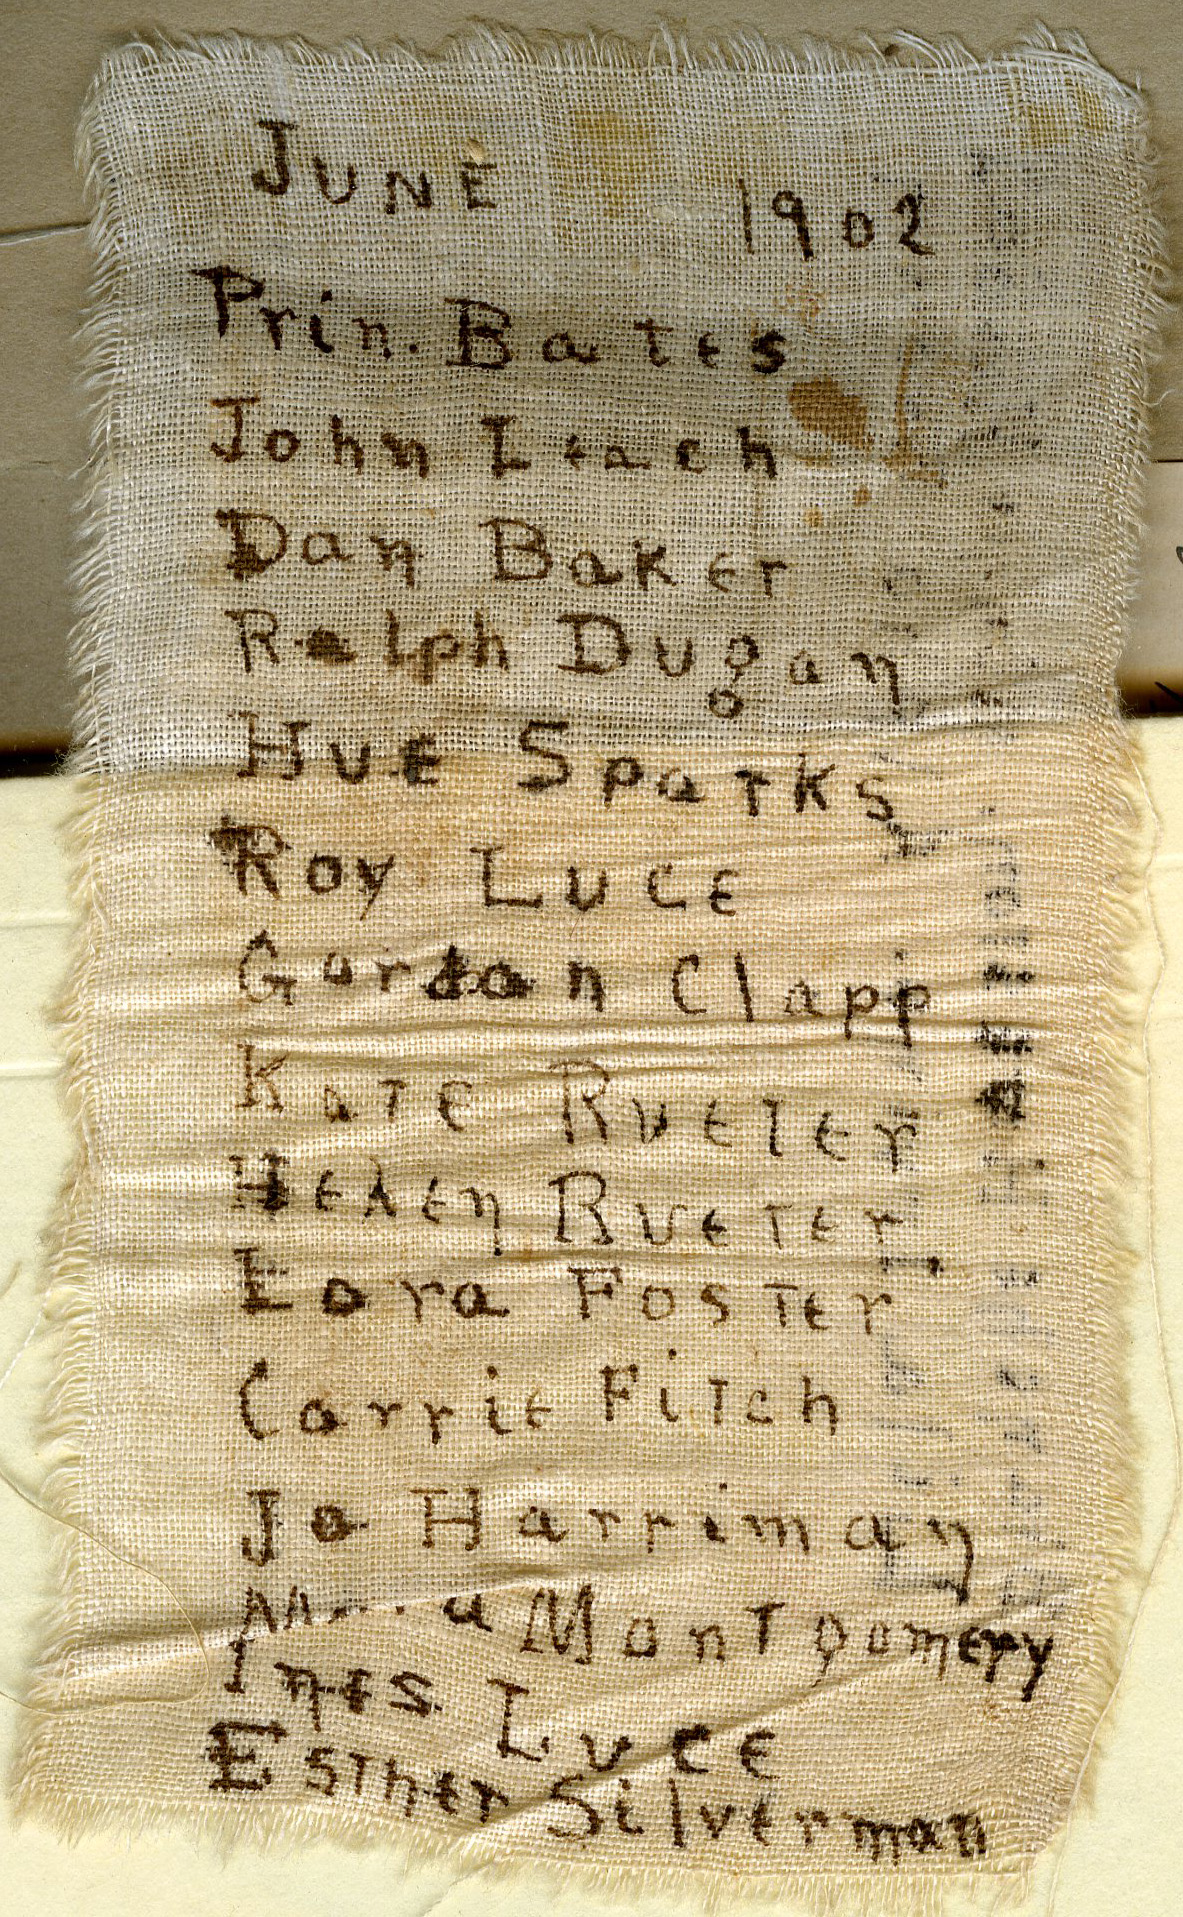 JUNE 1902
Prin. Bates
John Leach
Dan Baker
Ralph Dugan
Hue Sparks
Roy Luce
Gordon Clapp
Kate Rueter
Helen Rueter
Eora Foster
Carrie Fitch
Jo Harriman
Montgomery
Ines Luce
Esther Silverman